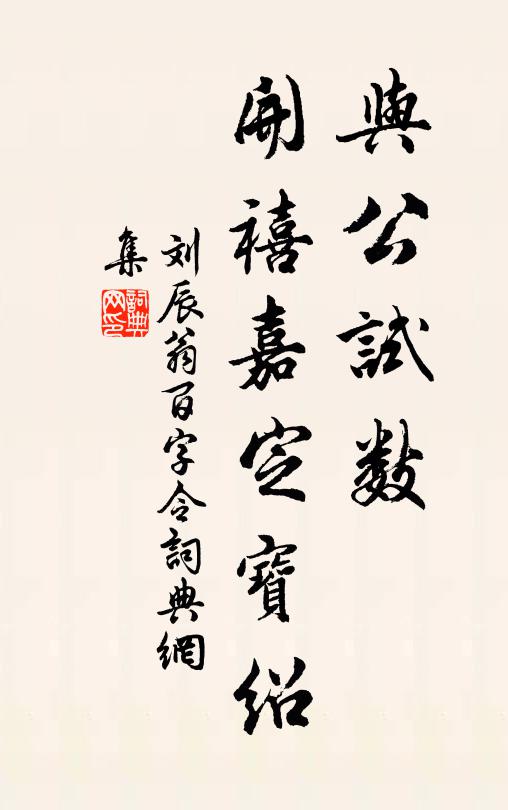 與公試数
開禧嘉定寶紹
刘辰翁百字令詞典網
集
詞典
网印